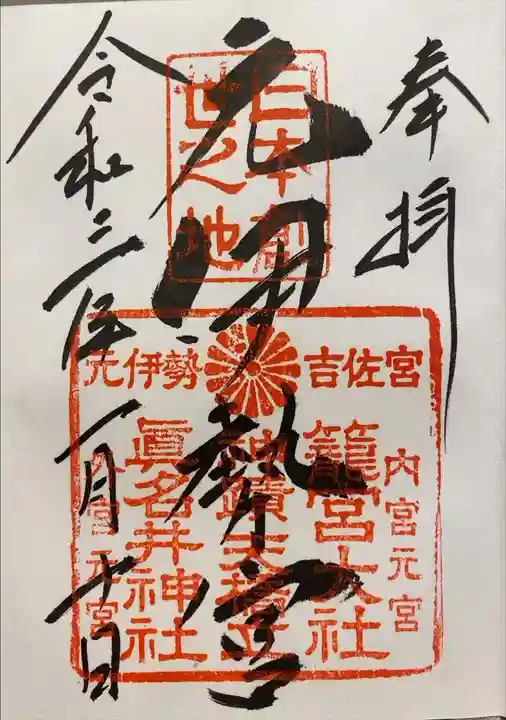 奉拝
元伊勢宮
令和三年一月十日
日本創
世之地
吉佐宮
元伊勢
内宮元宮
籠宮大社
神蹟天橋立
眞名井神社
外宮元宮